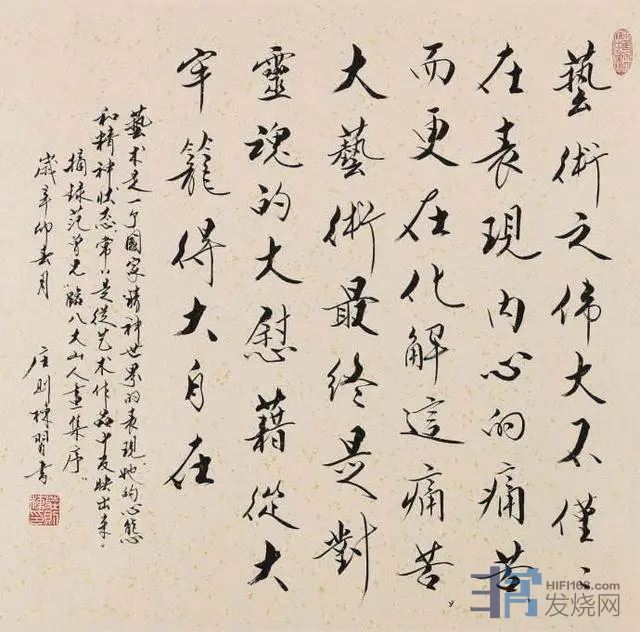 藝術之偉大不僅〻
在表現内心的痛苦
而更在化解這痛苦
大藝術最终是對
靈魂的大慰藉從大
牢籠得大自在
藝术是一个國家精神世界的表現她的心態
和精神状态常〻是從艺术作品中反映出来
摘録范曾先生臨八大山人畫集序
歲辛卯春月
庄则棟習书
HIFI168.com
发烧网